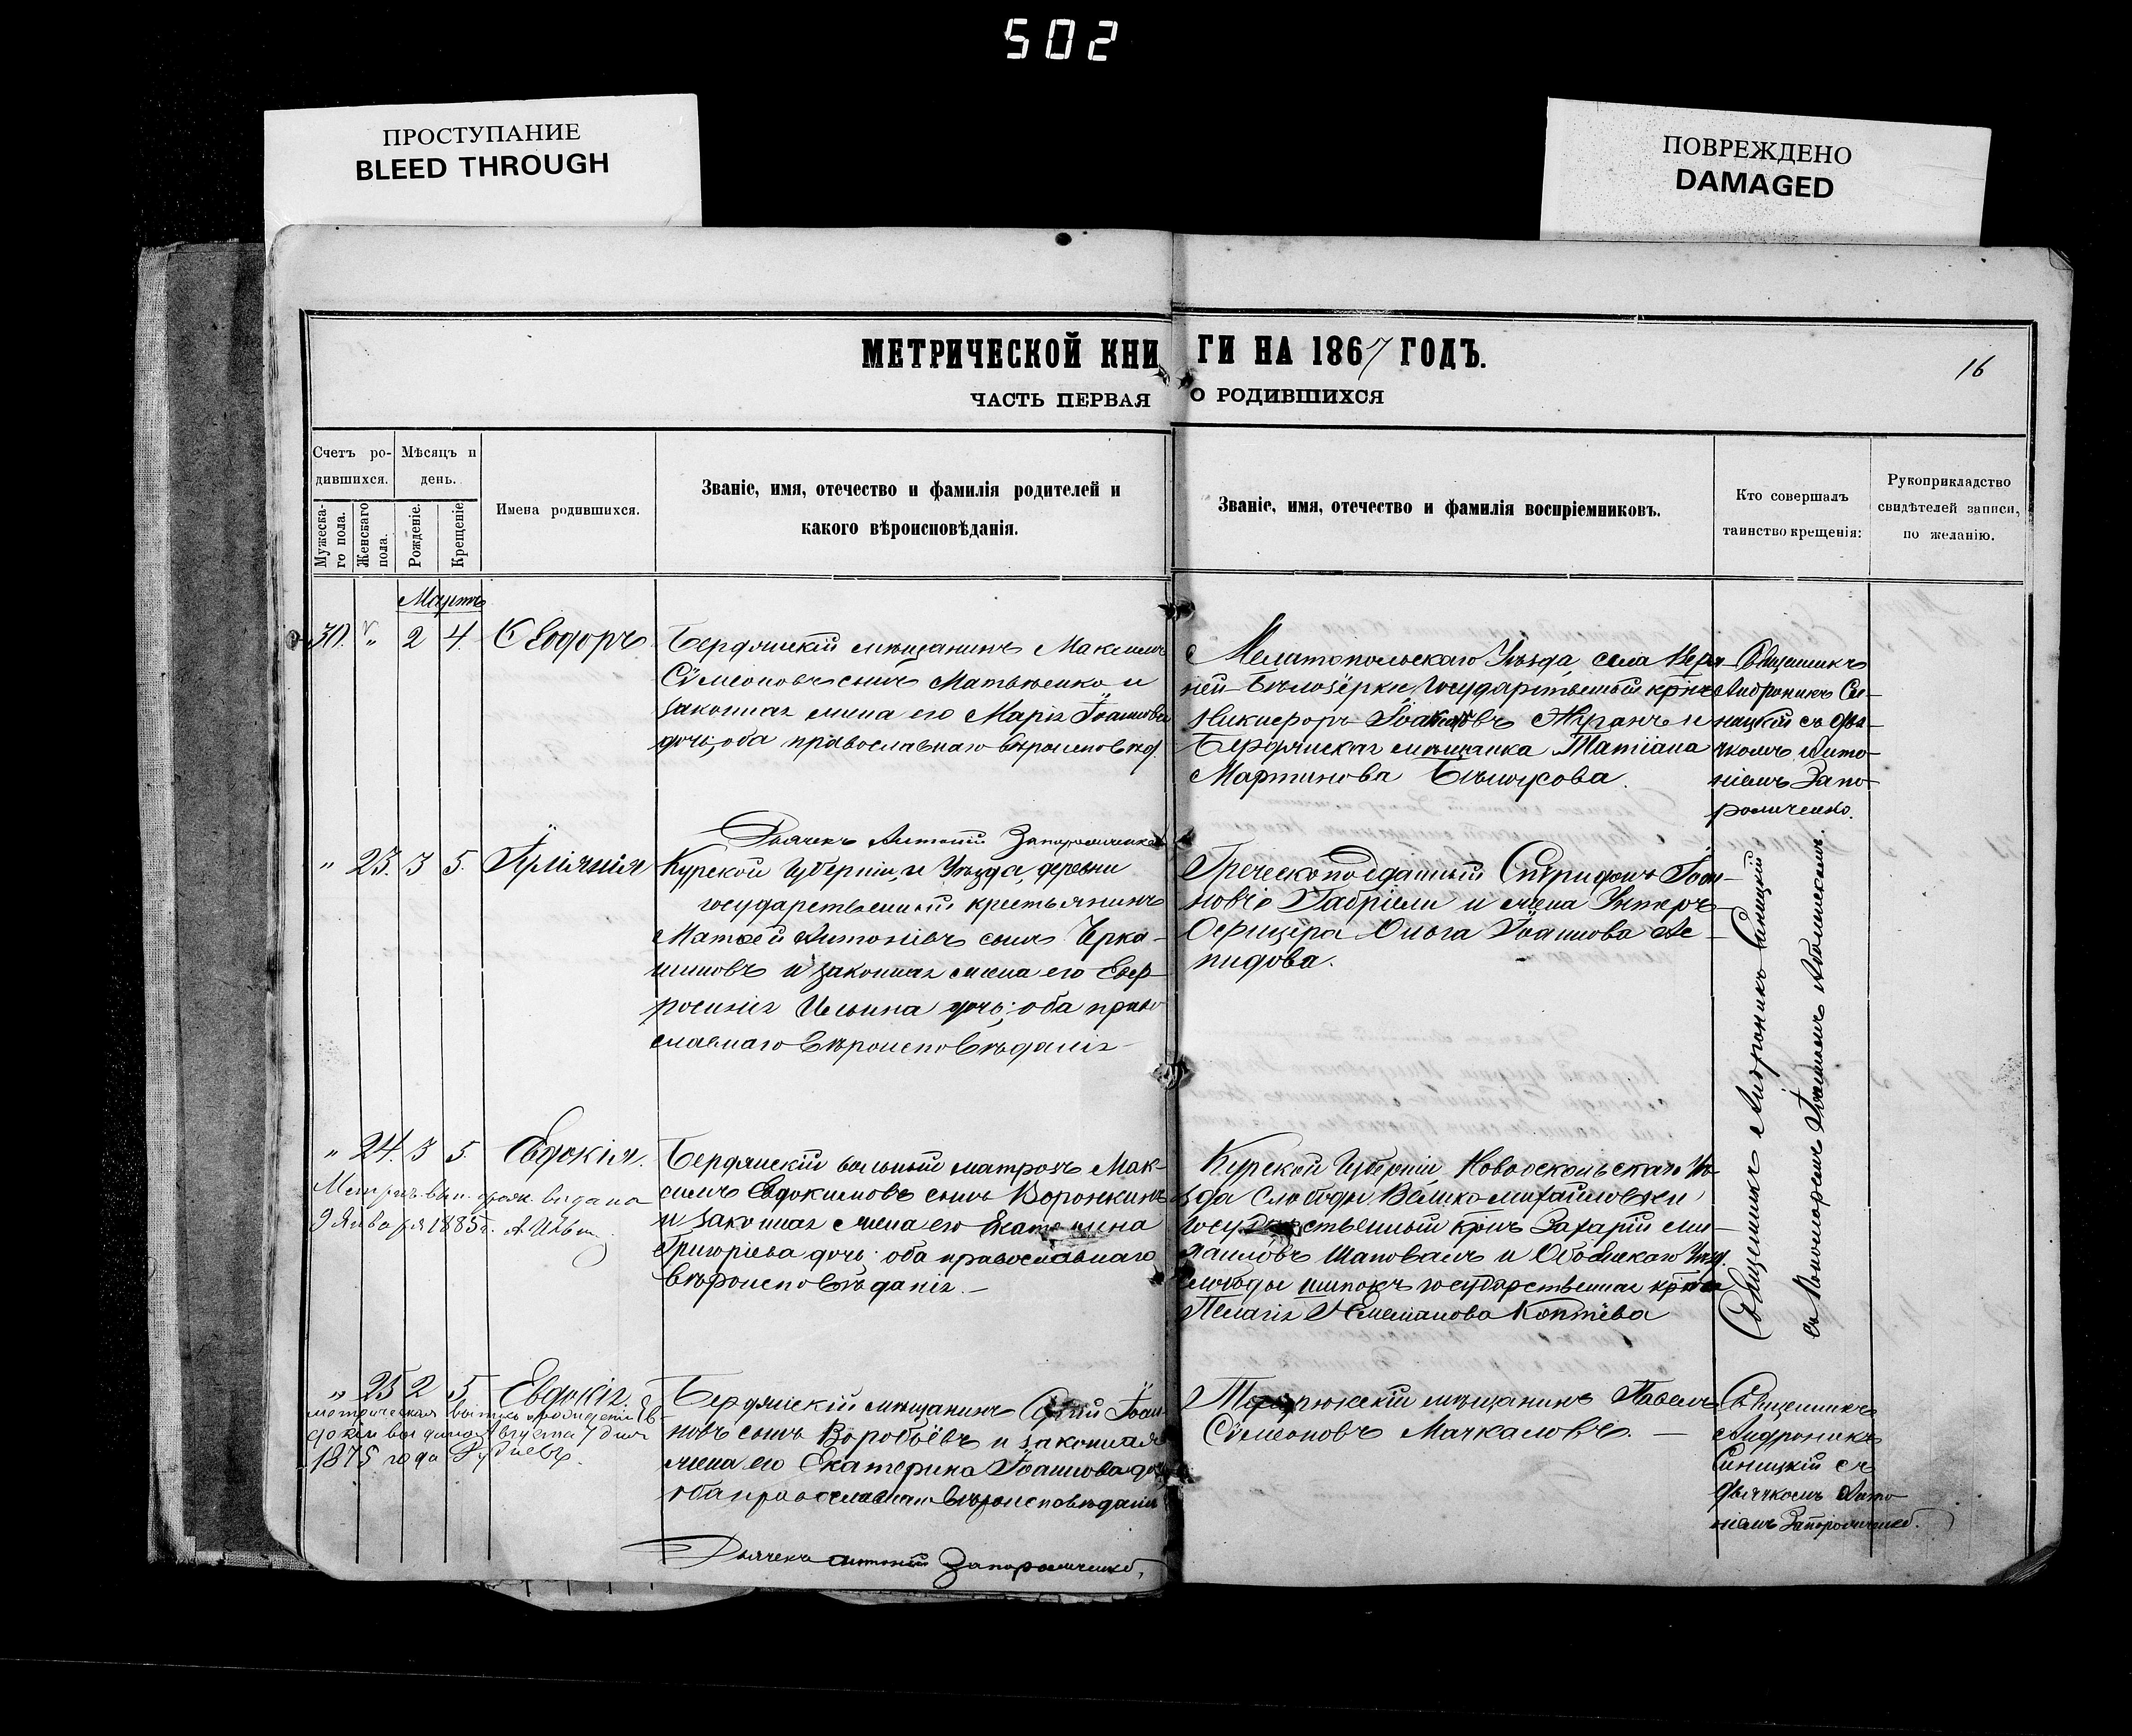 502
ПРОСТУПАНИЕ
BLEED THROUGH
ПОВРЕЖДЕНО
DAMAGED
МЕТРИЧЕСКОЙ КНИГИ НА 1867 ГОДЪ.
16
ЧАСТЬ ПЕРВАЯ О РОДИВШИХСЯ
Счетъ ро-
дившихся.
Мужеска-
го пола.
Женскаго
пола.
Мѣсяцъ и
день.
Рожденіе.
Крещеніе
Имена родившихся.
Званіе, имя, отечество и фамилія родителей и
какого вѣроисповѣданія.
Званіе, имя, отечество и фамилія воспріемниковъ.
Кто совершалъ
таинство крещенія:
Рукоприкладство
свидѣтелей записи,
по желанію.
Мартъ
30. " 2 4. Ѳеодоръ
Бердянскій мѣщанинъ Максимъ
Сѵмеоновъ сынъ Матвѣенко и
законная жена его Марія Іоаннова
дочь, оба православнаго вѣроисповѣд.
Мелитопольскаго Уѣзда, села Верх-
ней-Бѣлозёрки, Государственный кр-нъ
Никифоръ
и
Бердянская мѣщанка Татіана
Мартинова
Священникъ
Андроникъ Си-
ницкій съ дья-
чкомъ Анто-
ніемъ Запо-
рожченко.
Дьячекъ Антоній Запорожченко
" 23. 3 5.
Курской Губерніи, и Уѣзда, деревни
государственный крестьянинъ
Матѳей Антоніевъ сынъ Черка-
шиновъ и законная жена его Евф-
росинія Ильина дочь; оба право
славнаго вѣроисповѣданія
Греческоподданный Спѵридонъ Іоан-
новъ Габріели и жена Унтеръ-
Офицера Ольга Іоаннова Ле-
пидова.
Священникъ Андроникъ Синицкій
съ Пономаремъ Іоанномъ
" 24. 3 5. Евдокія.
Метрич. вып. о рож. выдана
9 Января 1885 г.
Бердянскій вольный матрозъ Мак-
симъ Евдокимовъ сынъ Воронкинъ
и законная жена его Екатерина
Григоріева дочь; оба православнаго
вѣроисповѣданія. —
Курской Губерніи, Новооскольскаго Уѣ-
зда Слободы Велико-михайловки
государственный кр-нъ Захарій Ми-
хаиловъ Шаповалъ и Обоянскаго Уѣзд.
слободы государственная кр-ка
Пелагія Коптева
" 25 2 5. Евдокія
метрическая выпись о рожденіи Ев-
докіи выдана Августа 7 дня
1875 года
Бердянскій мѣщанинъ Сергій Іоан-
новъ сынъ Воробьёвъ и законная
жена его Екатерина Іоаннова дочь
оба православнаго вѣроисповѣданія
Темрюкскій мѣщанинъ Павелъ
Сѵмеоновъ Мачкаловъ. —
Священникъ
Андроникъ
Синицкій съ
дьячкомъ Анто-
ніемъ Запорожченко.
Дьячекъ Антоній Запорожченко,